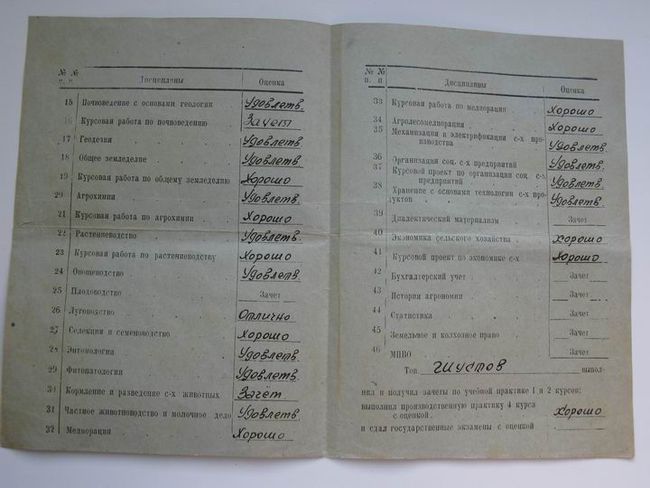 № № п. п. Дисциплины Оценка
15 Почвоведение с основами геологии Удовлетв.
16 Курсовая работа по почвоведению Зачет
17 Геодезия Удовлетв.
18 Общее земледелие Удовлетв.
19 Курсовая работа по общему земледелию Хорошо
20 Агрохимия Удовлетв.
21 Курсовая работа по агрохимии Хорошо
22 Растениеводство Удовлетв.
23 Курсовая работа по растениеводству Хорошо
24 Овощеводство Удовлетв.
25 Плодоводство Зачет
26 Луговодство Отлично
27 Селекция и семеноводство Хорошо
28 Энтомология Удовлетв.
29 Фитопатология Удовлетв.
30 Кормление и разведение с-х животных Зачёт
31 Частное животноводство и молочное дело Удовлетв.
32 Мелиорация Хорошо
№ № п. п. Дисциплины Оценка
33 Курсовая работа по мелиорации Хорошо
34 Агролесомелиорация Хорошо
35 Механизация и электрификация с-х про-
изводства Удовлетв.
36 Организация соц. с-х предприятий Удовлетв.
37 Курсовой проект по организации соц. с-х
предприятий Удовлетв.
38 Хранение с основами технологии с-х пр-
дуктов Удовлетв.
39 Диалектический материализм Зачет
40 Экономика сельского хозяйства Хорошо
41 Курсовой проект по экономике с-х Хорошо
42 Бухгалтерский учет Зачет
43 История агрономии Зачет
44 Статистика Зачет
45 Земельное и колхозное право Зачет
46 МПВО Зачет
Тов. выпол-
нил и получил зачеты по учебной практике 1 и 2 курсов;
выполнил производственную практику 4 курса
с оценкой Хорошо
и сдал государственные экзамены с оценкой